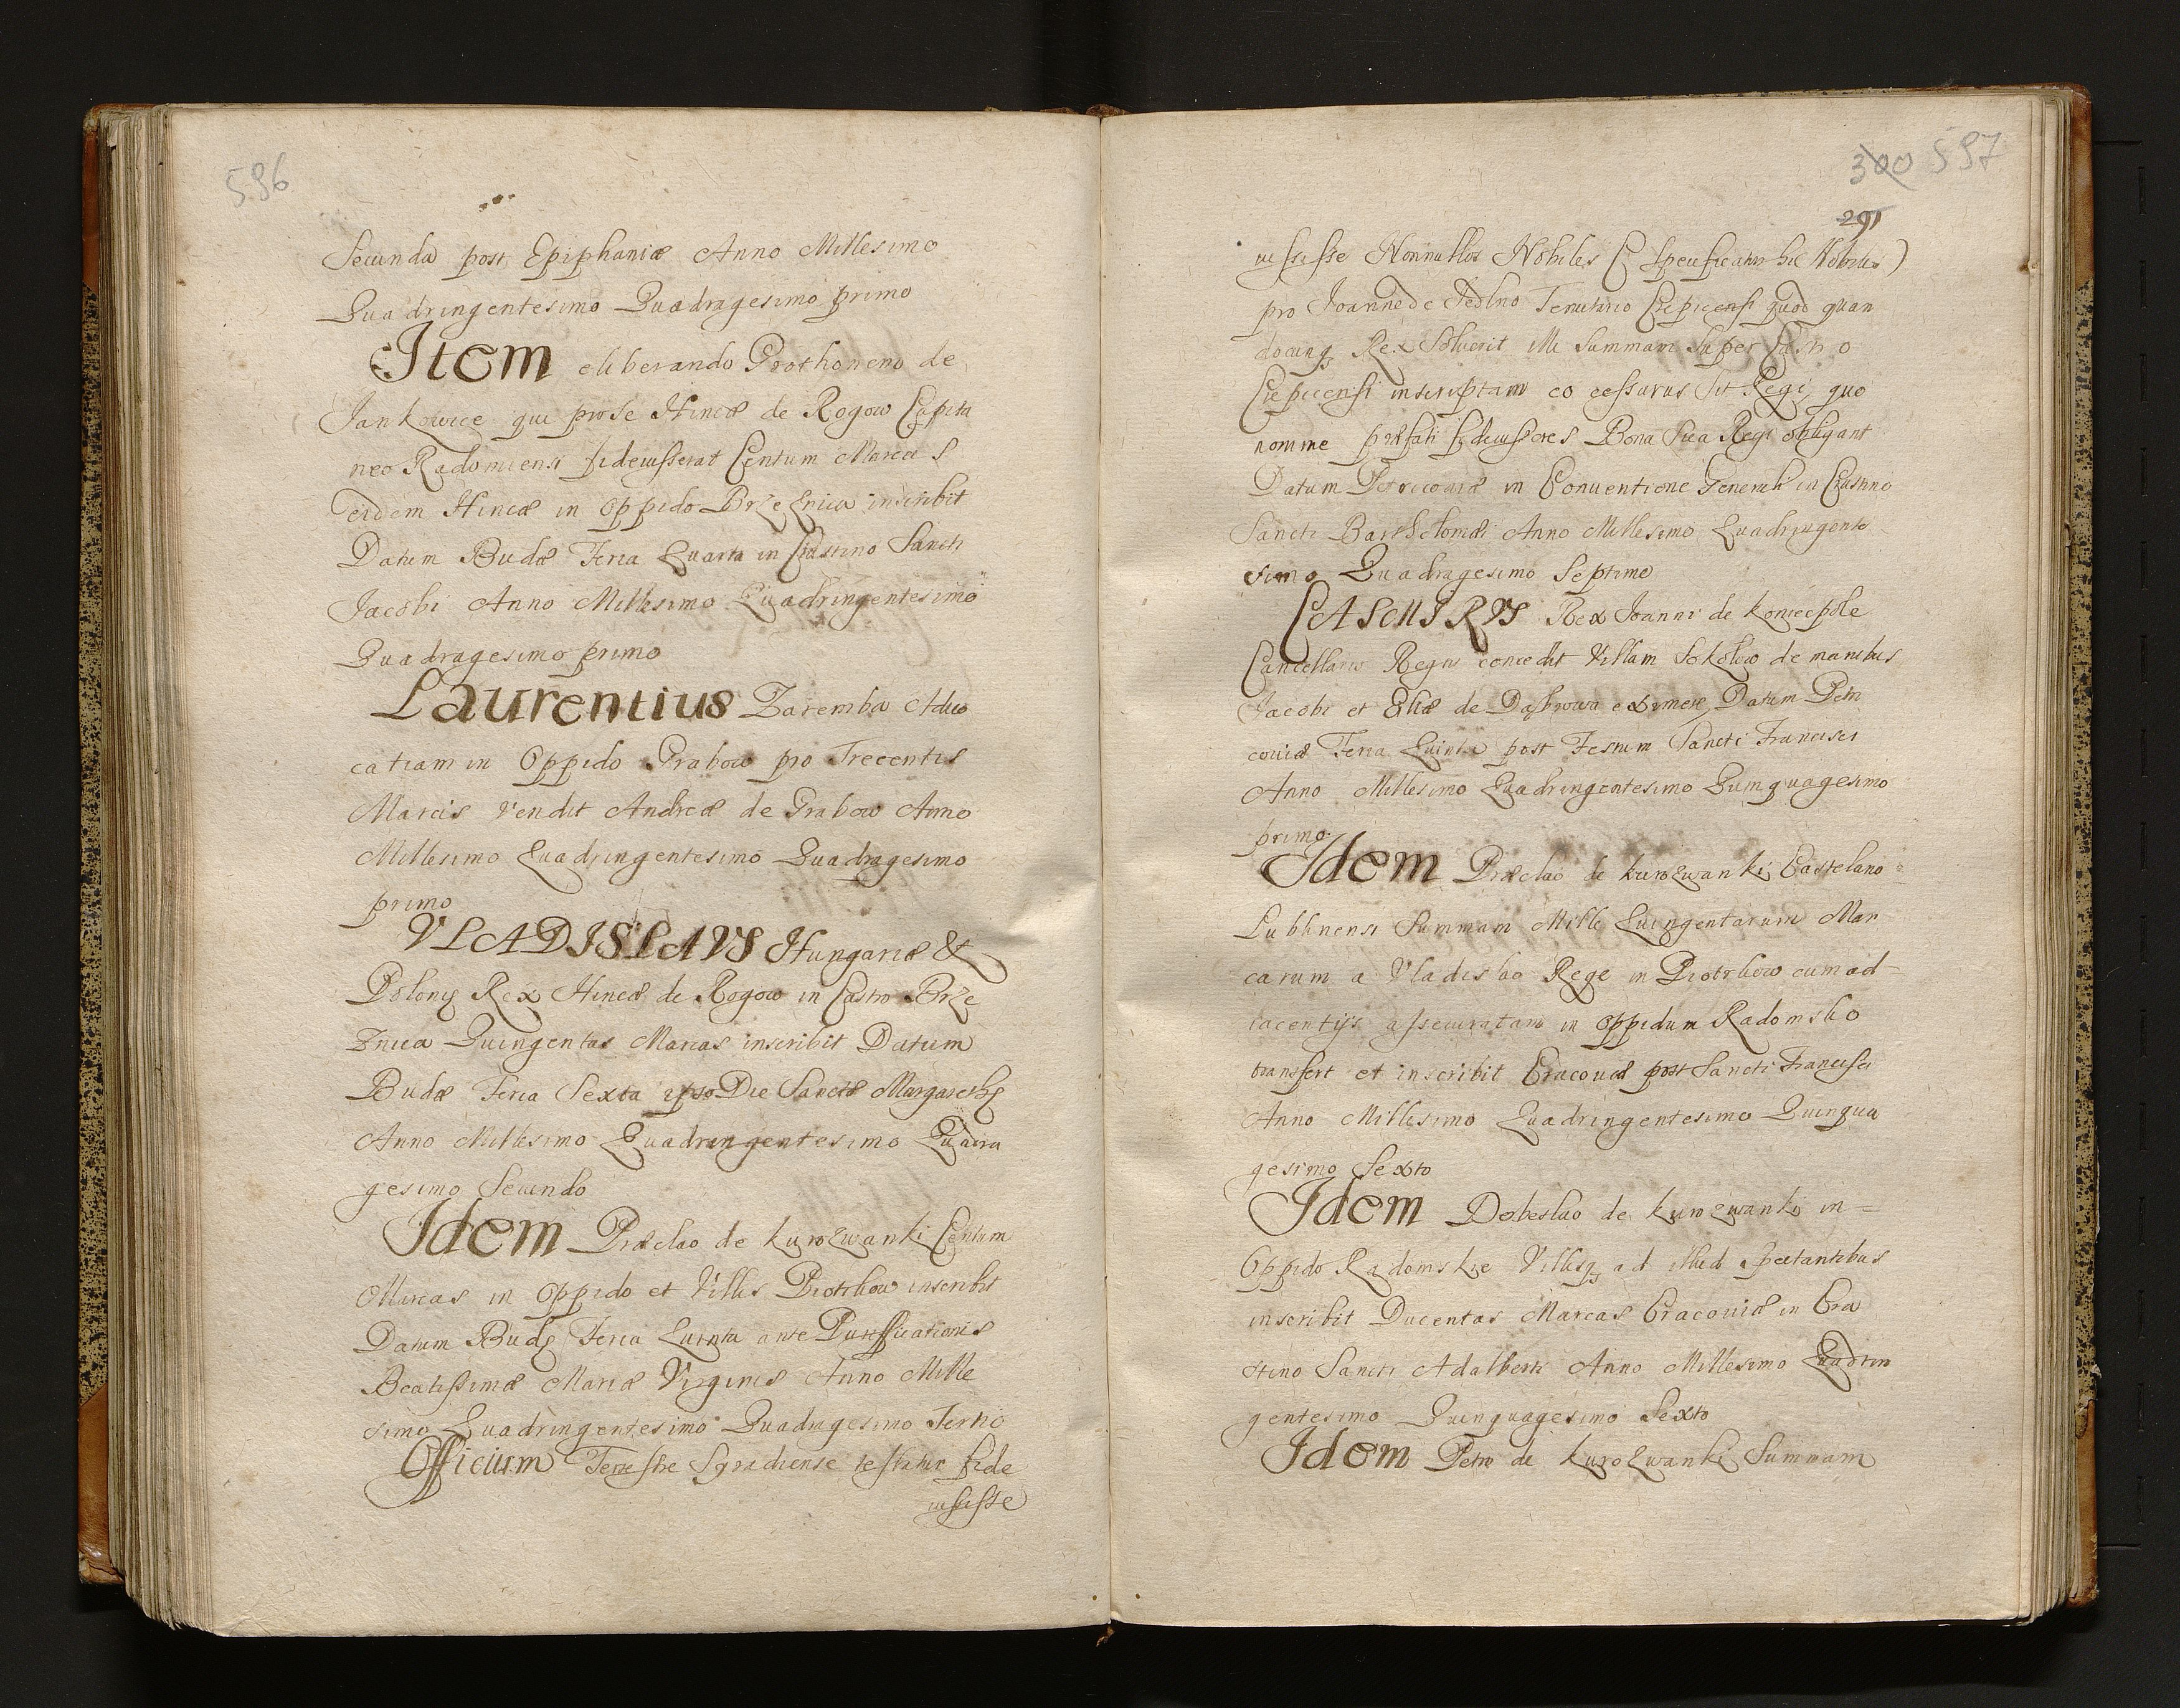 596
Secunda post Epiphaniæ Anno Millesimo
Quadringentesimo Quadragesimo primo
Item eliberando Prothoneno de
Jankowice qui pro se Hincæ de Rogow Capita
neo Radomiensi fideiusserat Centum Marcas
eidem Hincæ in Oppido Brzeznica inscribit
Datum Budæ Feria Quarta in Crastino Sancti
Jacobi Anno Millesimo Quadringentesimo
Quadragesimo primo
Laurentius Zaremba Advo
catiam in Oppido Grabow pro Trecentis
Marcis vendit Andreæ de Grabow Anno
Millesimo Quadringentesimo Quadragesimo
primo
VLADISLAVS Hungariæ &
Polonię Rex Hincæ de Rogow in Castro Brze
znica Quingentas Marcas inscribit Datum
Budæ Feria Sexta ipso Die Sanctæ Margarethę
Anno Millesimo Quadringentesimo Quadra
gesimo Secundo
Idem Præclao de Kurozwanki Centum
Marcas in Oppido et Villis Piotrkow inscribit
Datum Budę Feria Quinta ante Purifficationis
Beatissimæ Mariæ Virginis Anno Mille
simo Quadringentesimo Quadragesimo Tertio
Officium Terrestre Syradiense testatur fide
iussisse
300 597
291
iussisse Nonnullos Nobiles (Specificatur hic Nobiles)
pro Joanne de Tedlno Tenutario Crepicensi quod quan
docunq Rex Solverit illi Summam super Castro
Crepicensi inscriptam eo cessurus sit Regi, quo
nomine præfati fideiussores Bona sua Regi obligant
Datum Petricoviæ in Conventione Generali in Crastino
Sancti Bartholomæi Anno Millesimo Quadringente
simo Quadragesimo Septimo
CASIMIRVS Rex Joanni de Koniecpole
Cancellario Regni concedit Villam Sokolow de manibus
Jacobi et Eliæ de Dąbrowa eximere, Datum Petri
coviæ Feria Quinta post Festum Sancti Francisci
Anno Millesimo Quadringentesimo Quinquagesimo
primo.
Idem Præclao de Kurozwanki Castelano=
Lublinensi Summam Mille Quingentarum Mar
carum a Vladislao Rege in Piotrkow cum ad=
iacentijs assecuratam in Oppidum Radomsko
transfert et inscribit Cracoviæ post Sancti Francisci
Anno Millesimo Quadringentesimo Quinqua
gesimo Sexto
Idem Dobeslao de Kurozwanki in=
Oppido Radomskie Villisq ad illud spectantibus
inscribit Ducentas Marcas Cracoviæ in Cra
stino Sancti Adalberti Anno Millesimo Quadrin
gentesimo Quinquagesimo Sexto
Idem Petro de Kurozwanki Summam